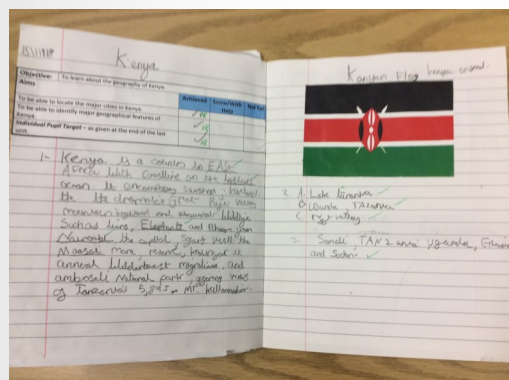 15/11/19
Kenya
Objective: To learn about the geography of Kenya.
Aims
Achieved
Some/With Help
Not Yet
To be able to locate the major cities in Kenya.
To be able to identify major geographical features of Kenya.
Individual Pupil Target – as given at the end of the last unit.
1- Kenya is a country in EAST
Africa with coastline on the Indian
ocean it encompass savannah,
the dramatic Great Rift Valley
mountain highland and abundant wildlife
Such as lions, Elephants and Rhinos. from
Nairobi, the capital, Safari visit the
Maasai Mara, reserve, known for it
annual wildebeest migrations, and
amboseli National park, views
of Tanzania's 5,895m MT. Kilimanjaro.
Kenyan Flag
2. A. Lake
B
C. rift valley
3. Somali, TANzania Uganda,
and